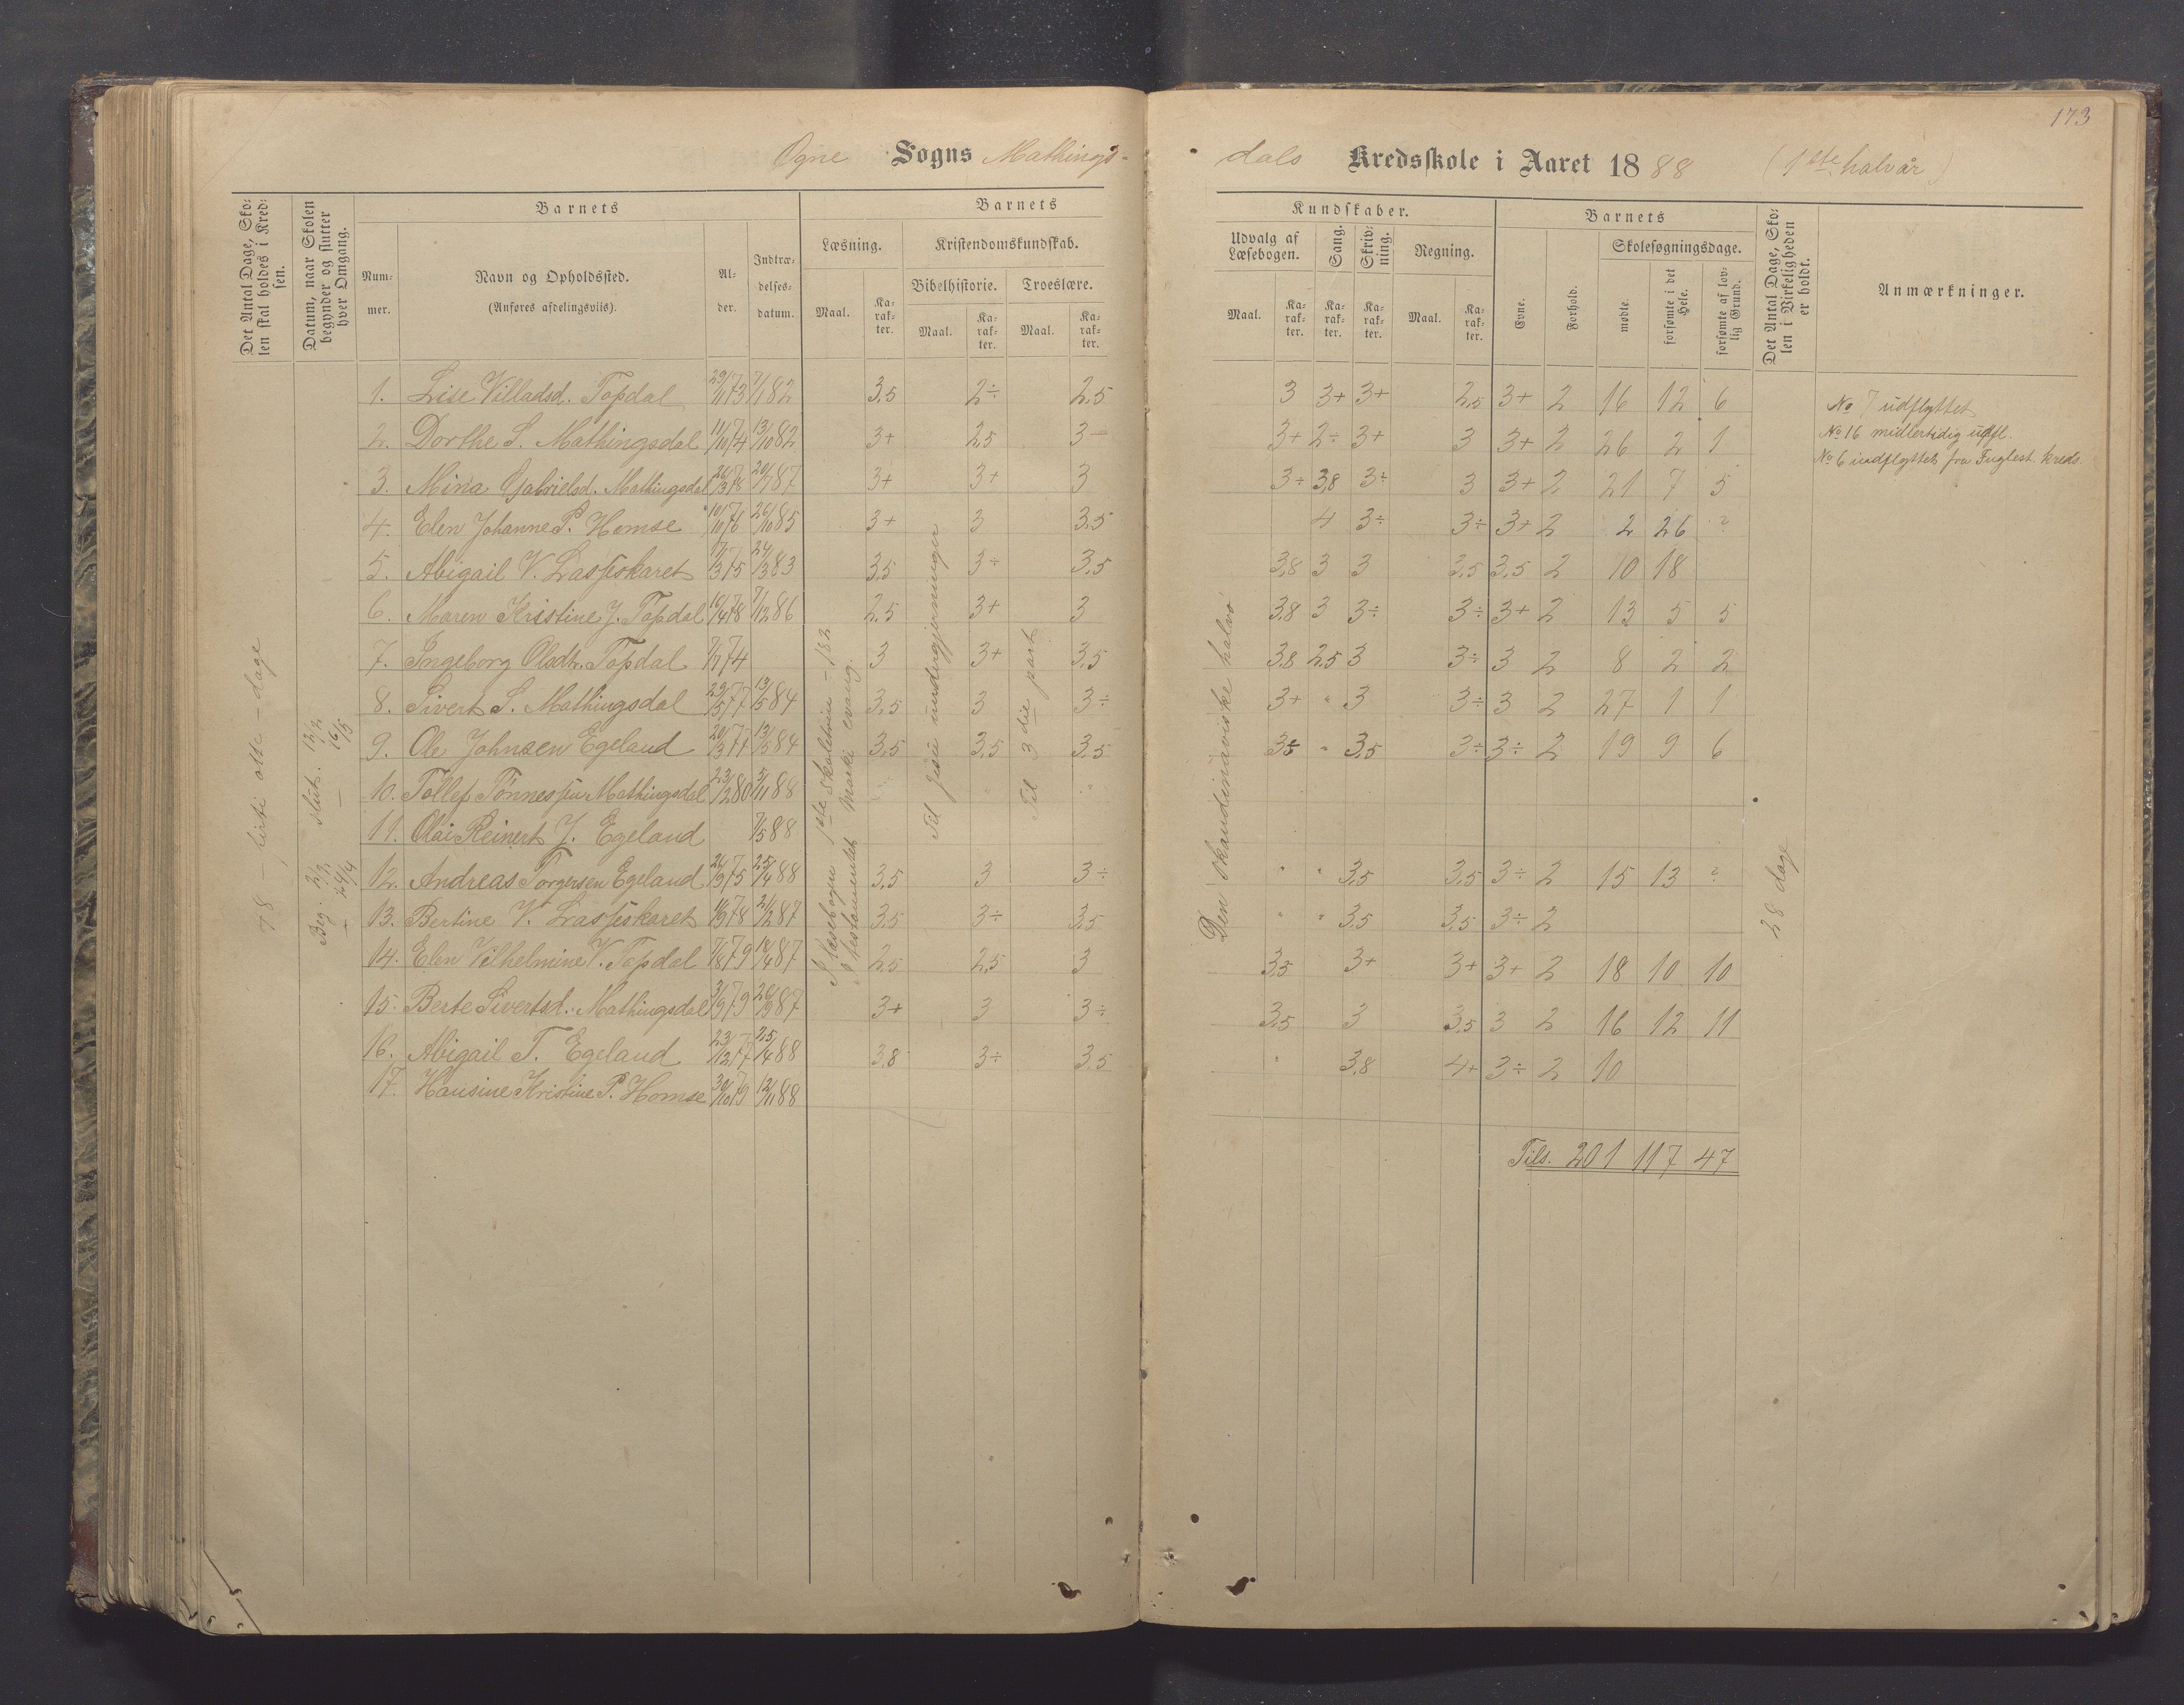 173
Ogne Sogns Mathings-dals Kredsskole i Aaret 1888 (1ste halvår)
Det Antal Dage, Skolen skal holdes i Kredsen.
Datum, naar Skolen begynder og slutter hver Omgang.
Barnets
Nummer.
Navn og Opholdssted.
(Anføres afdelingsviis).
Alder.
Indtrædelsesdatum.
Barnets Kundskaber.
Læsning.
Maal.
Karakter.
Kristendomskundskab.
Bibelhistorie.
Maal.
Karakter.
Troeslære.
Maal.
Karakter.
Udvalg af Læsebogen.
Maal.
Karakter.
Sang.
Karakter.
Skrivning.
Karakter.
Regning.
Maal.
Karakter.
Barnets
Evne.
Forhold.
Skolesøgningsdage.
mødte.
forsømte i det Hele.
forsømte af lovlig Grund.
Det Antal Dage, Skolen i Virkeligheden er holdt.
Anmærkninger.
78 – sytti otte – dage
Beg. 2/2. Slut. 12/2.
— 24/4 — 16/5
I læsebogen 1ste skoletrin – 132
I testamentet Marki evang.
Til Jesu undergjerninger
Til 3die part
Den skandinaviske halvø
28 dage
1. Lise Villadsd. Topdal 29/11 73 7/1 82 3,5 2÷ 2,5 3 3+ 3+ 2,5 3+ 2 16 12 6
2. Dorthe S. Mathingsdal 11/10 74 13/10 82 3+ 2,5 3– 3+ 2÷ 3+ 3 3+ 2 26 2 1
3. Mina Gabrielsd. Mathingsdal 26/3 78 20/7 87 3+ 3+ 3 3÷ 3,8 3÷ 3 3+ 2 21 7 5
4. Elen Johanne P. Homse 10/10 76 26/10 85 3+ 3 3,5 4 3÷ 3÷ 3+ 2 2 26 ?
5. Abigail V. Lasseskaret 17/3 75 24/3 83 3,5 3÷ 3,5 3,8 3 3 3,5 3,5 2 10 18
6. Maren Kristine J. Topdal 16/4 78 7/12 86 2,5 3+ 3 3,8 3 3÷ 3÷ 3+ 2 13 5 5
7. Ingeborg Olsdtr. Topdal 7/7 74 3 3+ 3,5 3,8 2,5 3 3÷ 3 2 8 2 2
8. Sivert S. Mathingsdal 29/5 77 13/5 84 3,5 3 3÷ 3+ " 3 3÷ 3 2 27 1 1
9. Ole Johnsen Egeland 20/3 77 13/5 84 3,5 3,5 3,5 " 3,5 3÷ 3÷ 2 19 9 6
10. Tollef Tønnessen Mathingsdal 23/2 80 5/11 88
11. Olai Reinert J. Egeland 7/5 88
12. Andreas Torgersen Egeland 24/9 75 25/4 88 3,5 3 3÷ " " 3,5 3,5 3÷ 2 15 13 ?
13. Bertine V. Lasseskaret 78 2/2 87 3,5 3÷ 3,5 " " 3,5 3,5 3÷ 2
14. Elen Vilhelmine V. Topdal 7/8 79 14/4 87 2,5 2,5 3 3,5 3+ 3+ 3+ 2 18 10 10
15. Berte Sivertsd. Mathingsdal 3/9 79 87 3+ 3 3÷ 3,5 3 3,5 3 2 16 12 11
16. Abigail T. Egeland 23/12 77 25/4 88 3,8 3÷ 3,5 " 3,8 4+ 3÷ 2 10
17. Hansine Kristine P. Homse 30/10 79 12/11 88
Tils. 201 117 47
No 7 udflyttet
No 16 midlertidig udfl.
No 6 indflyttet fra Fuglest. kreds.